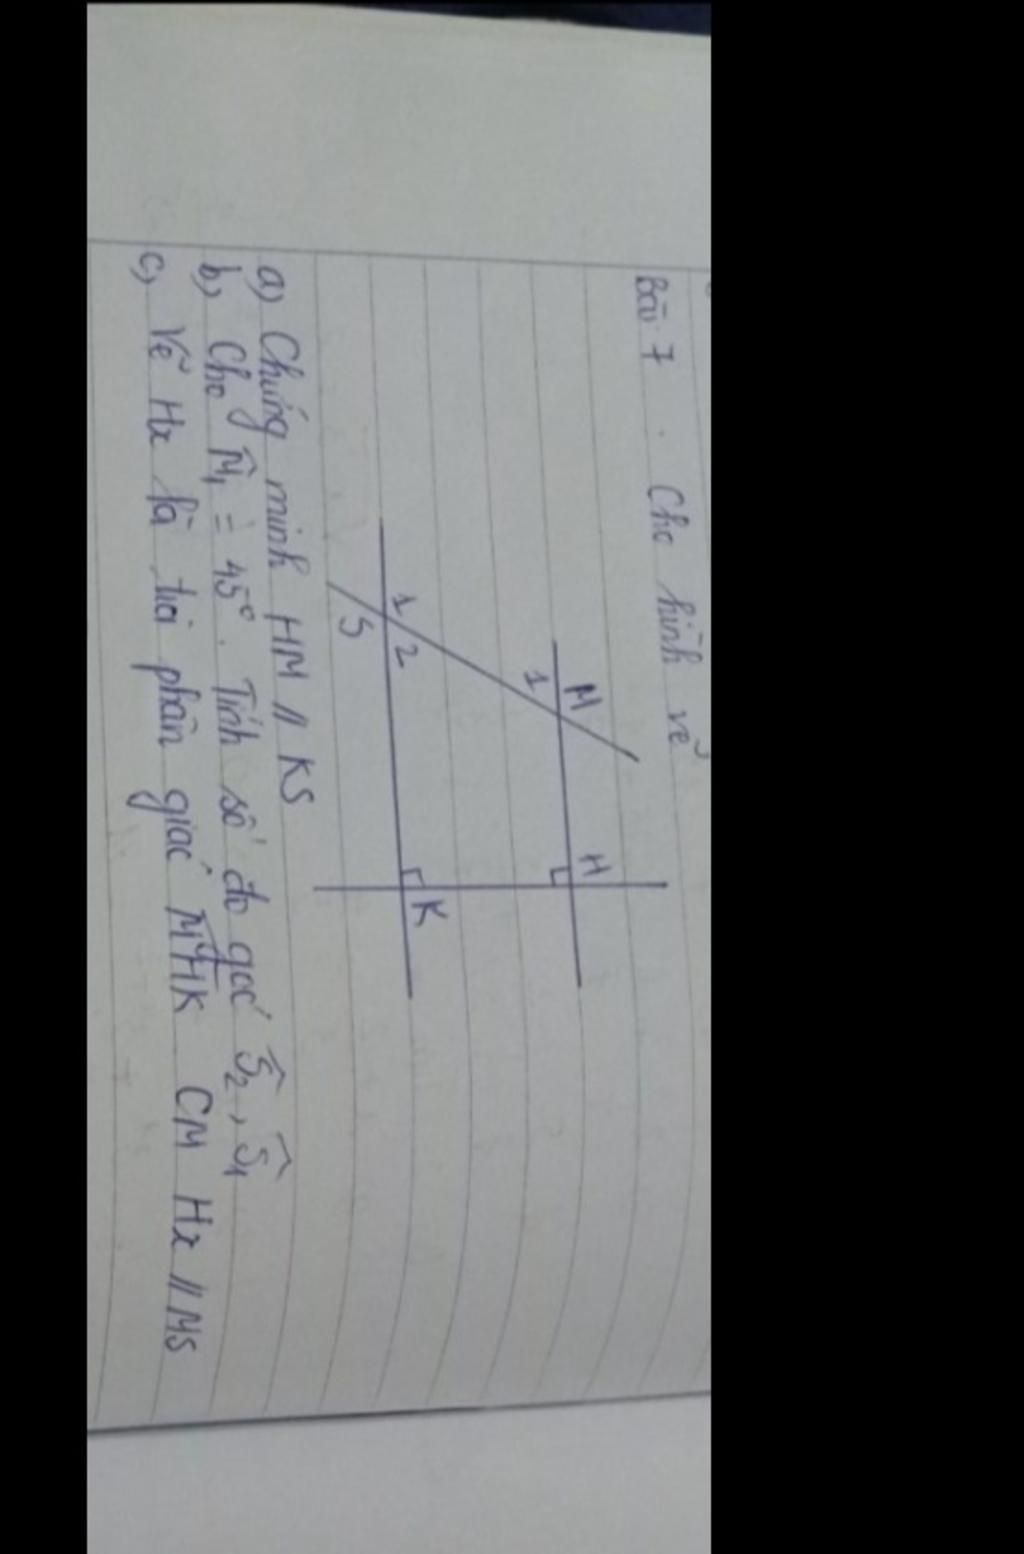 Bài 7. Cho hình vẽ
M H
1
1 2
S K
a) Chứng minh HM // KS
b) Cho M̂₁ = 45°. Tính số đo góc Ŝ₂, Ŝ₁
c) Vẽ Hx là tia phân giác M̂HK CM Hx // MS